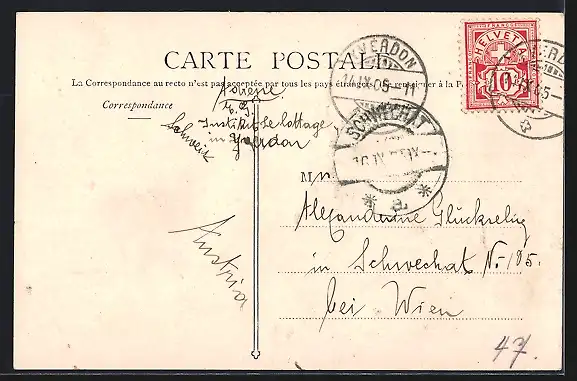 CARTE POSTALE
La Correspondance au recto n'est pas acceptée par tous les pays étrangers.
Correspondance
Adresse
Institut de Cottage
in Yverdon
Schweiz
Austria
YVERDON
14.IX.05
HELVETIA
10
YVERDON
SCHWECHAT
M
Alexandrine Glückselig
in Schwechat Nr. 185.
bei Wien
47.